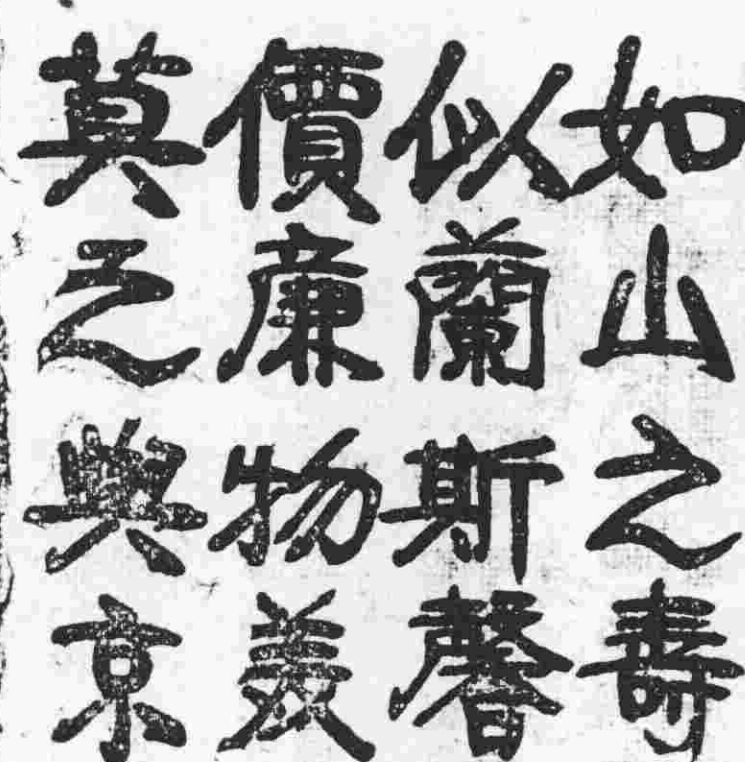 如山之壽
似蘭斯馨
價廉物美
莫之與京